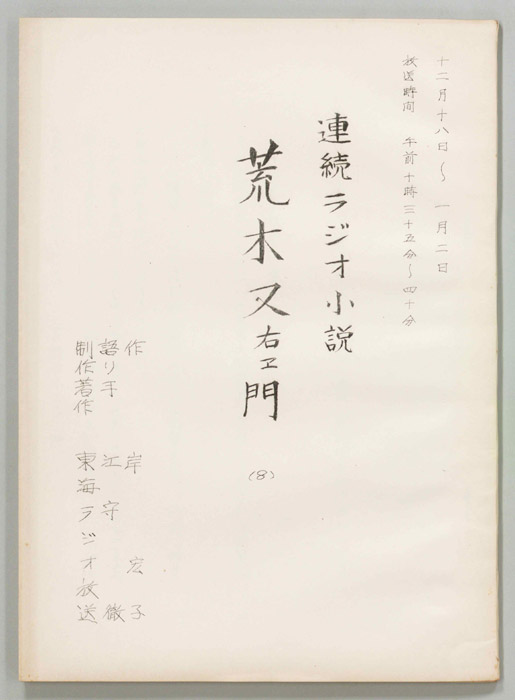 十二月十八日〜一月二日
放送時間 午前十時三十五分〜四十分
連続ラジオ小説
荒木又右ヱ門
(8)
作 岸宏子
語り手 江守徹
制作著作 東海ラジオ放送